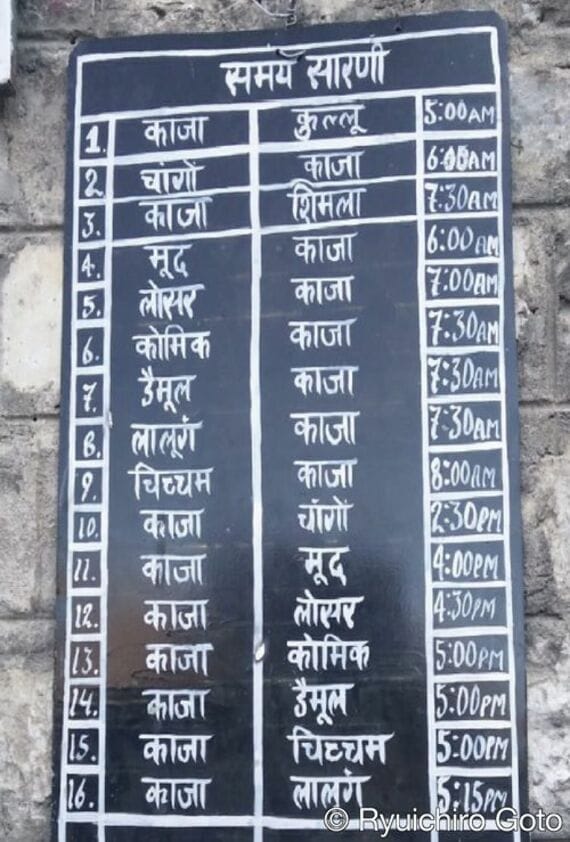 समय सारणी
1. काजा कुल्लू 5:00AM
2. चांगों काजा 6:00AM
3. काजा शिमला 7:30AM
4. मूद काजा 6:00AM
5. लोसर काजा 7:00AM
6. कोमिक काजा 7:30AM
7. डैमूल काजा 7:30AM
8. लालूगं काजा 7:30AM
9. चिच्चम काजा 8:00AM
10. काजा चांगों 2:30PM
11. काजा मूद 4:00PM
12. काजा लोसर 4:30PM
13. काजा कोमिक 5:00PM
14. काजा डैमूल 5:00PM
15. काजा चिच्चम 5:00PM
16. काजा लालगं 5:15PM
© Ryuichiro Goto